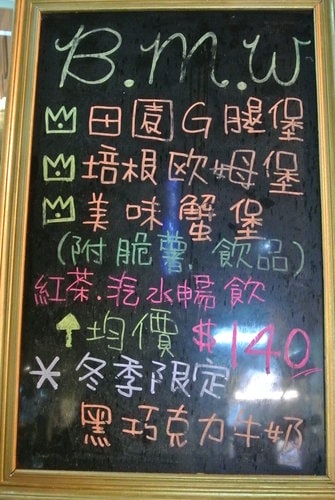 B.M.W
田園G腿堡
培根歐姆堡
美味蟹堡
(附脆薯.飲品)
紅茶.汽水暢飲
均價 $140
*冬季限定
黑巧克力牛奶